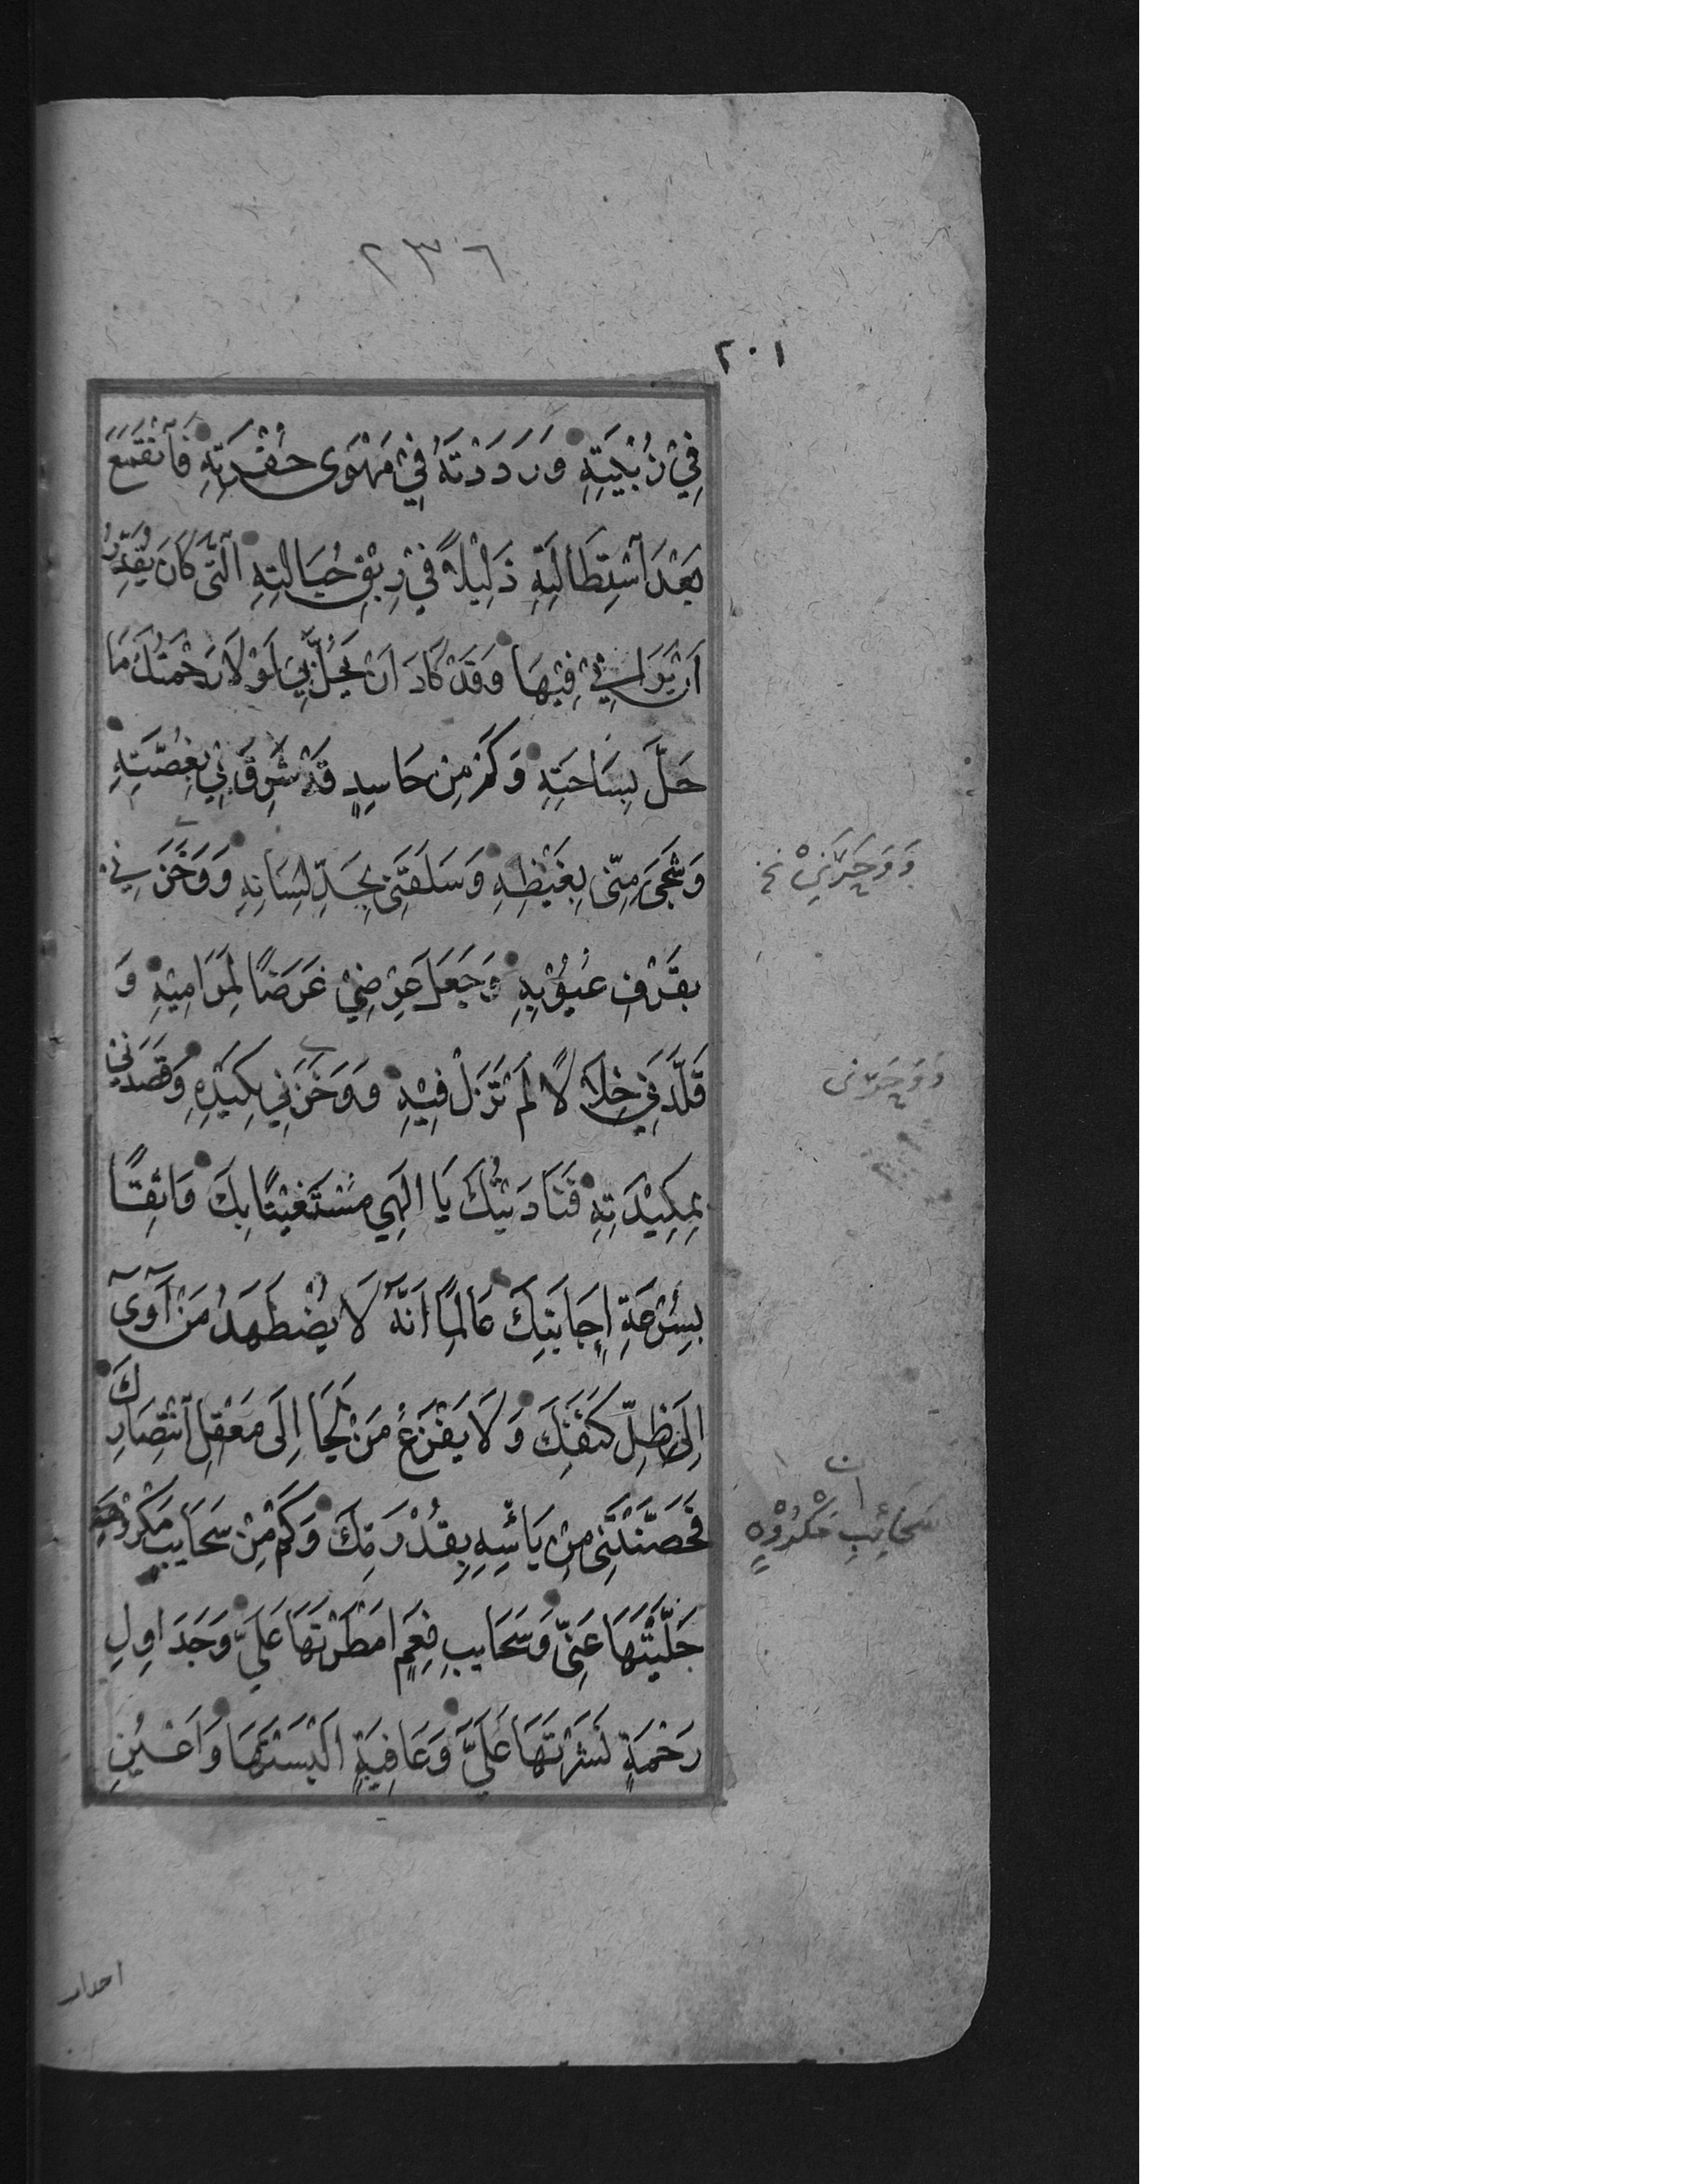 ٢٣٦
٢٠١
فِيْ زُبْيَتِهِ وَرَدَدْتَهُ فِيْ مَهْوٰى حُفْرَتِهِ فَانْقَمَعَ
بَعْدَ اسْتِطَالَتِهِ ذَلِيْلاً فِيْ رِبَقِ حُبَالَتِهِ الَّتِيْ كَانَ يُقَدِّرُ
اَنْ يَرَانِيْ فِيْهَا وَقَدْ كَادَ اَنْ يَحُلَّ بِيْ لَوْ لَا رَحْمَتُكَ مَا
حَلَّ بِسَاحَتِهِ وَكَمْ مِنْ حَاسِدٍ قَدْ شَرِقَ بِيْ بِغُصَّتِهِ
وَشَجِيَ مِنِّيْ بِغَيْظِهِ وَسَلَقَنِيْ بِحَدِّ لِسَانِهِ وَوَخَزَنِيْ
وَوَحَرَنِيْ نخ
بِقَرْفِ عُيُوْبِهِ وَجَعَلَ عِرْضِيْ غَرَضًا لِمَرَامِيْهِ وَ
قَلَّدَنِيْ خِلَالًا لَمْ تَزَلْ فِيْهِ وَوَخَزَنِيْ بِكَيْدِهِ وَقَصَدَنِيْ
وَوَحَرَنى
بِمَكِيْدَتِهِ فَنَادَيْتُكَ يَا اِلٰهِيْ مُسْتَغِيْثًا بِكَ وَاثِقًا
بِسُرْعَةِ اِجَابَتِكَ عَالِمًا اَنَّهُ لَا يُضْطَهَدُ مَنْ آوٰى
اِلٰى ظِلِّ كَنَفِكَ وَلَا يَفْزَعُ مَنْ لَجَأَ اِلَى مَعْقِلِ انْتِصَارِكَ
فَحَصَّنْتَنِيْ مِنْ بَأْسِهِ بِقُدْرَتِكَ وَكَمْ مِنْ سَحَايِبِ مَكْرُوْهٍ
سَحَائِبِ مَكْرُوْهٍ
جَلَّيْتَهَا عَنِّيْ وَسَحَايِبِ نِعَمٍ اَمْطَرْتَهَا عَلَيَّ وَجَدَاوِلِ
رَحْمَةٍ نَشَرْتَهَا عَلَيَّ وَعَافِيَةٍ اَلْبَسْتَهَا وَاَعْيُنِ
احداث